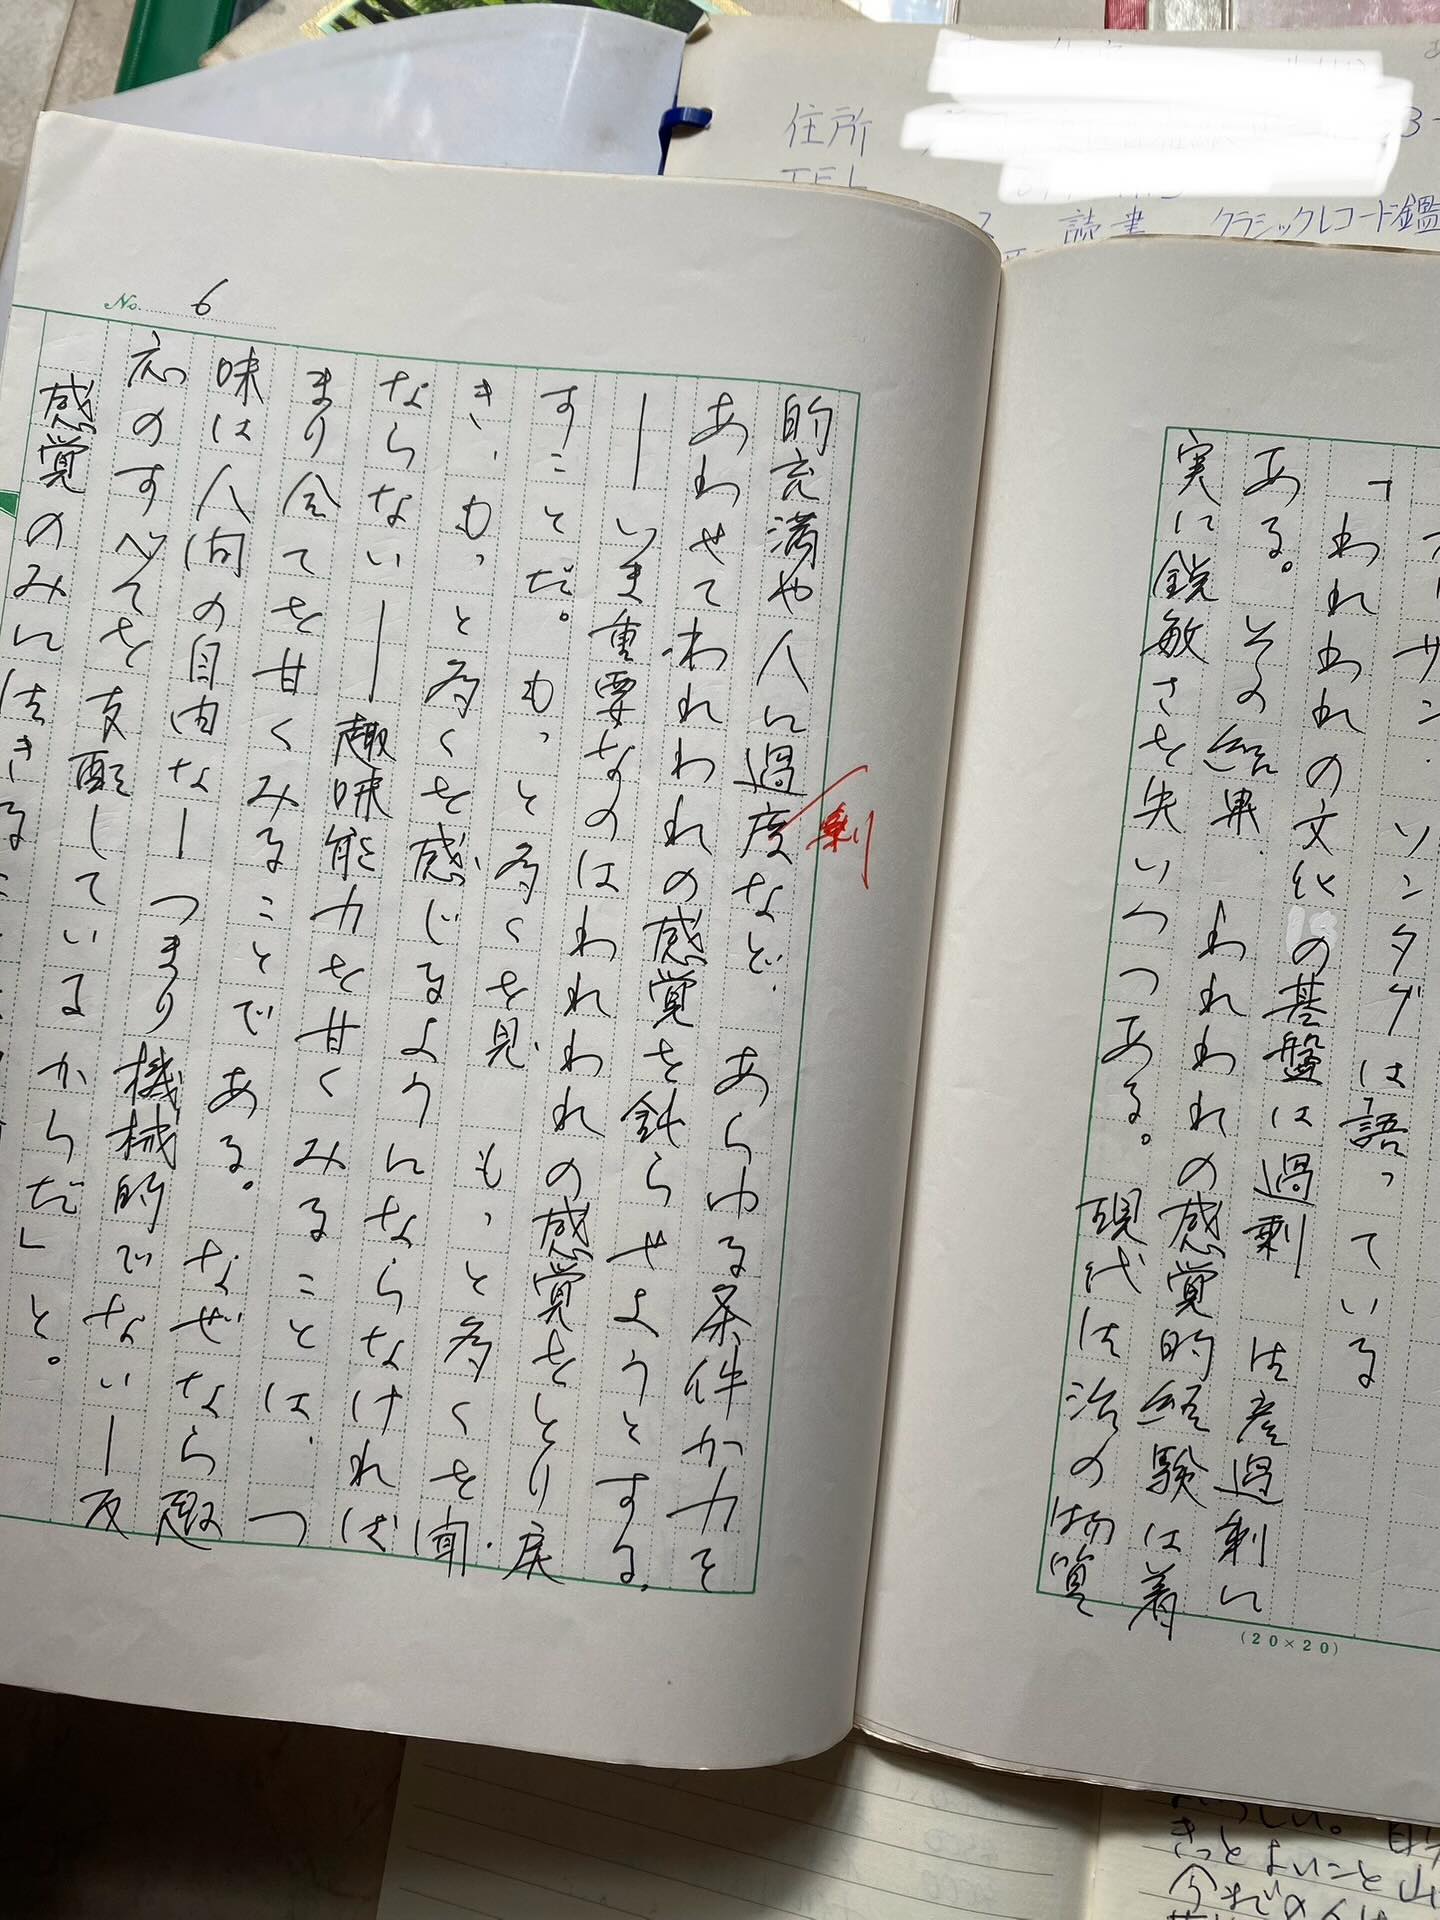 住所
TEL
読書 クラシックレコード鑑
サン・ソンタグは語っている
「われわれの文化の基盤は過剰 生産過剰に
ある。その結果、われわれの感覚的経験は着
実に鋭敏さを失いつつある。現代生活の物質
(20×20)
No. 6
的充満や人に過度など、あらゆる条件が力を
剰
あわせてわれわれの感覚を鈍らせようとする。
―いま重要なのはわれわれの感覚をとり戻
すことだ。もっと多くを見、もっと多くを聞
き、もっと多くを感じるようにならなければ
ならない―趣味能力を甘くみることは、つ
まり全てを甘くみることである。なぜなら趣
味は人間の自由な―つまり機械的でない―反
応のすべてを支配しているからだ」と。
感覚のみに生きるこ
きっとよいこと